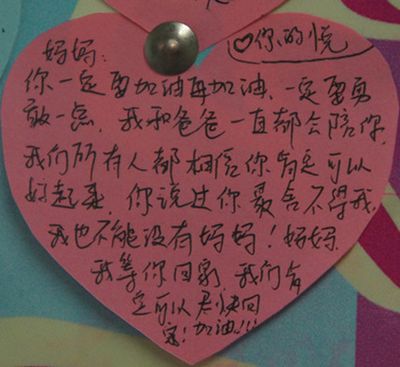 ♡你的悦
妈妈:
你一定要加油再加油、一定要勇
敢一点，我和爸爸一直都会陪你，
我们所有人都相信你肯定可以
好起来 你说过你最舍不得我，
我也不能没有妈妈！妈妈
我等你回家 我们肯
定可以尽快回
家！加油!!!